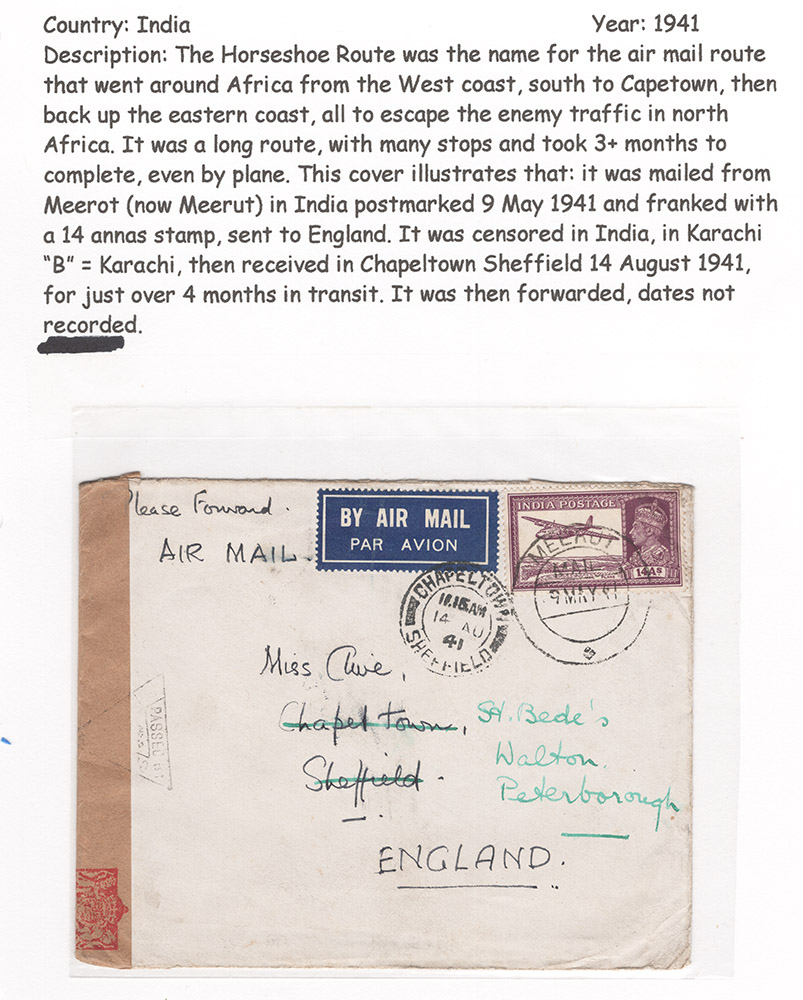 Country: India Year: 1941
Description: The Horseshoe Route was the name for the air mail route
that went around Africa from the West coast, south to Capetown, then
back up the eastern coast, all to escape the enemy traffic in north
Africa. It was a long route, with many stops and took 3+ months to
complete, even by plane. This cover illustrates that: it was mailed from
Meerot (now Meerut) in India postmarked 9 May 1941 and franked with
a 14 annas stamp, sent to England. It was censored in India, in Karachi
“B” = Karachi, then received in Chapeltown Sheffield 14 August 1941,
for just over 4 months in transit. It was then forwarded, dates not
recorded.
Please Forward.
AIR MAIL.
BY AIR MAIL
PAR AVION
INDIA POSTAGE
14AS
MEERUT
9 MAY 41
CHAPELTOWN
11.15AM
14 AU
41
SHEFFIELD
Miss Clive,
Chapel town,
Sheffield.
St. Bede's
Walton.
Peterborough
ENGLAND.
PASSED BY